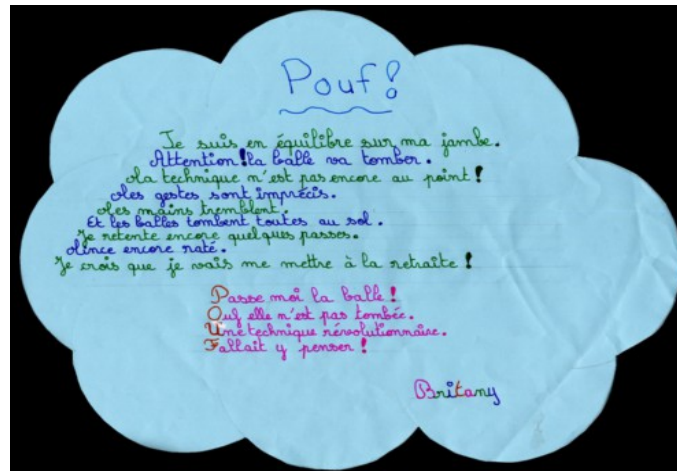 Pouf!
Je suis en équilibre sur ma jambe.
Attention! la balle va tomber.
La technique n'est pas encore au point!
Mes gestes sont imprécis.
Mes mains tremblent.
Et les balles tombent toutes au sol.
Je retente encore quelques passes.
Mince encore raté.
Je crois que je vais me mettre à la retraite!
Passe moi la balle!
Ouf elle n'est pas tombée.
Une technique révolutionnaire.
Fallait y penser!
Britany